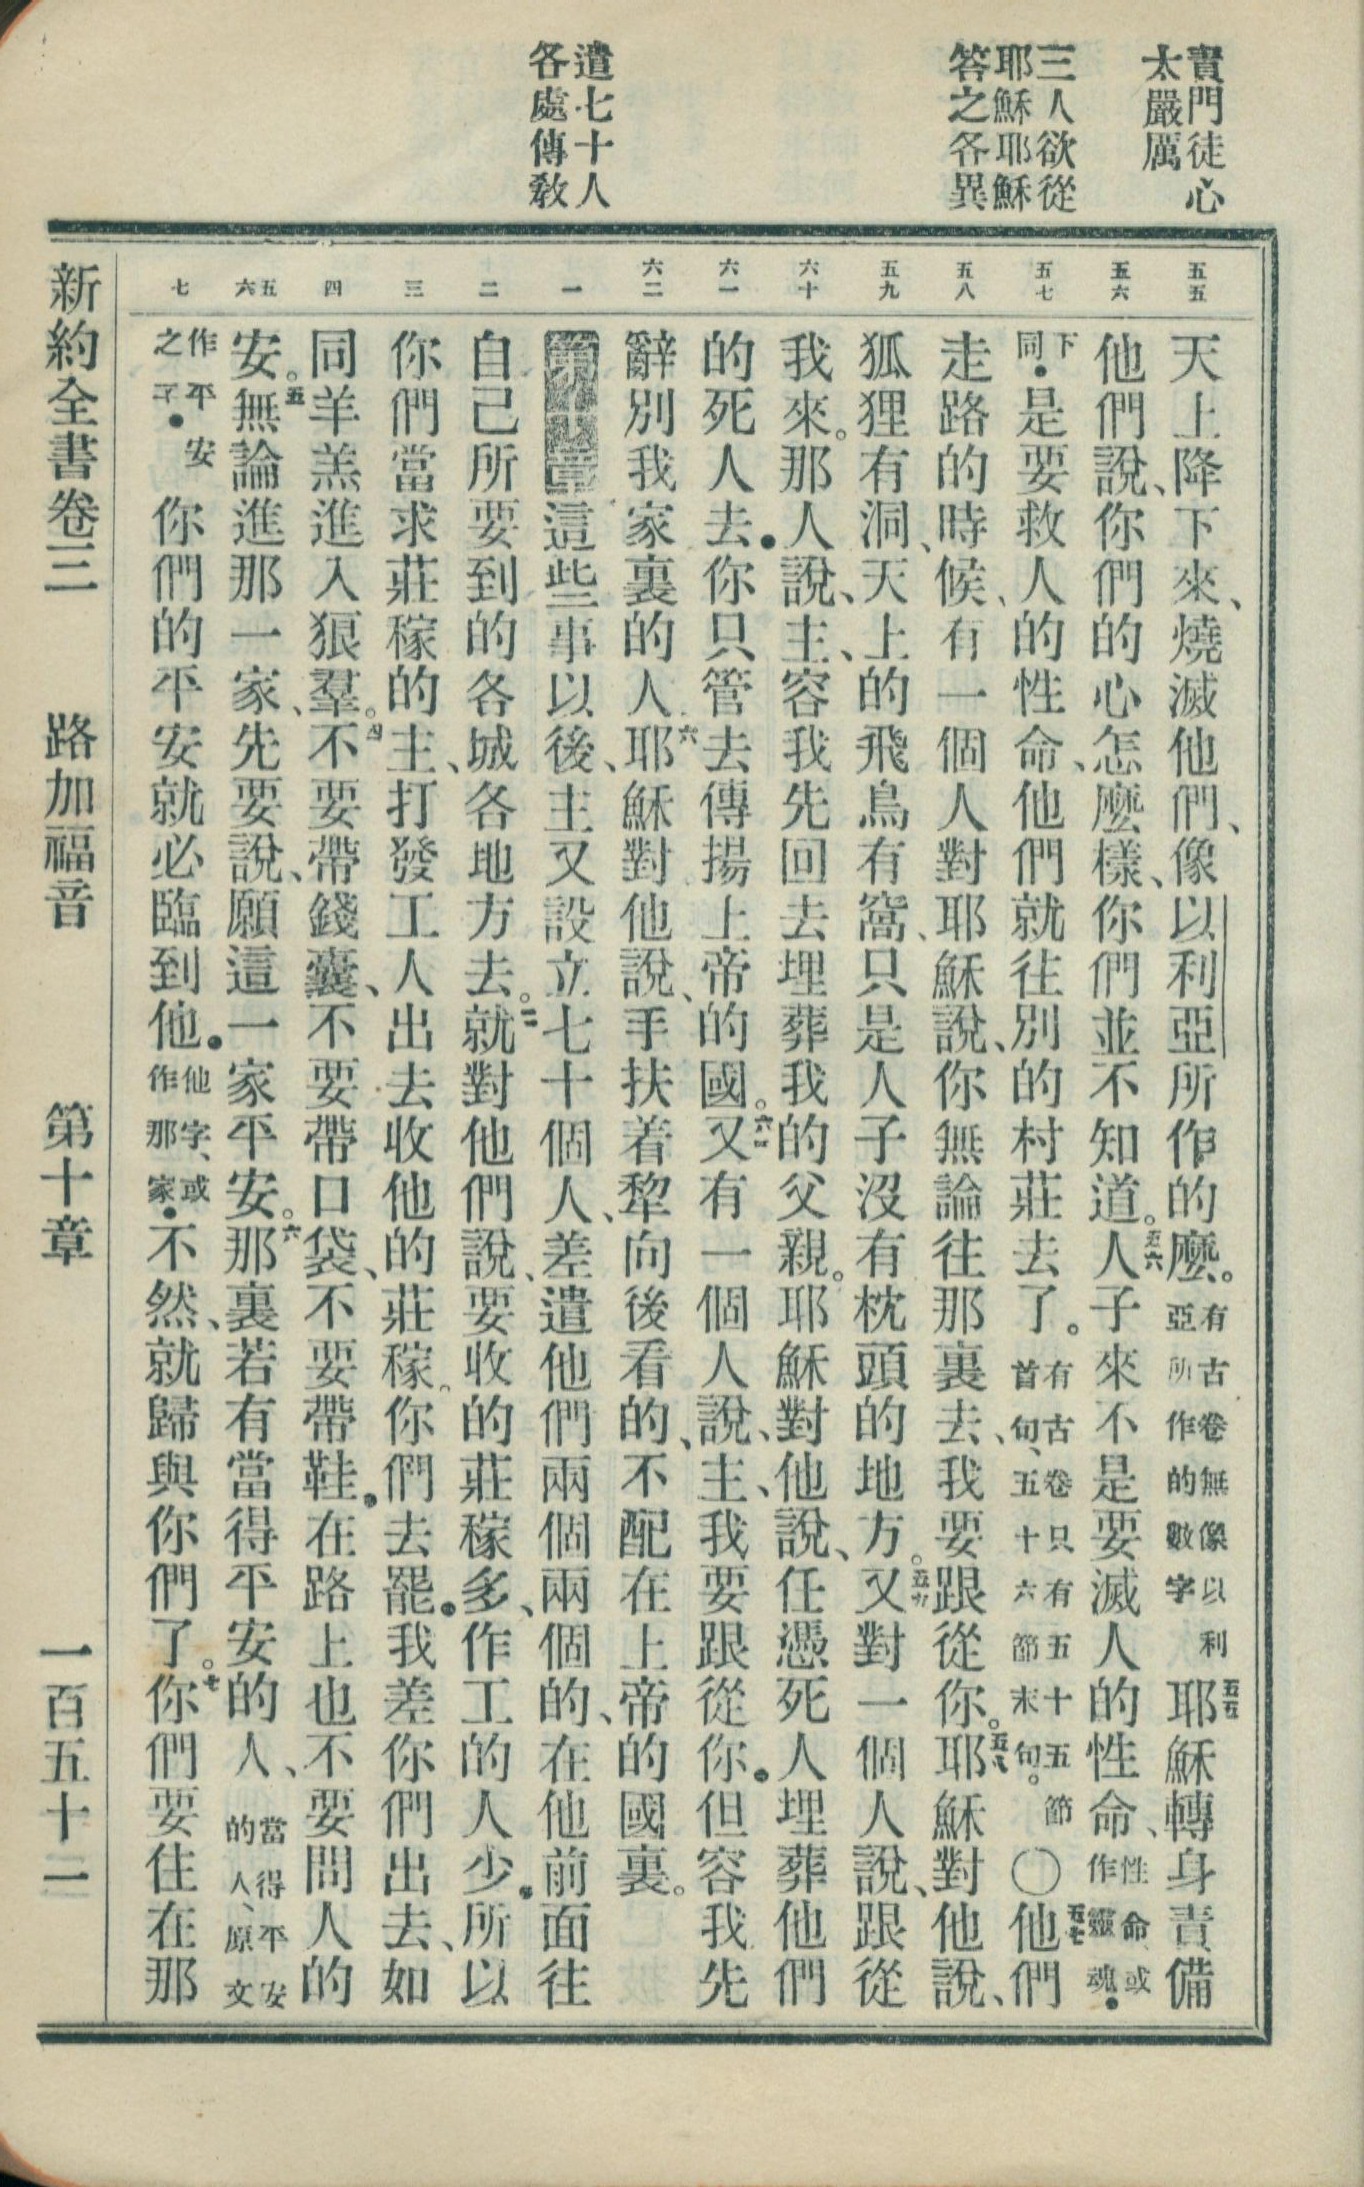 責門徒心
太嚴厲
三人欲從
耶穌耶穌
答之各異
遣七十人
各處傳敎
五五
五六
五七
五八
五九
六十
六一
六二
一
二
三
四
五
六
七
天上降下來、燒滅他們、像以利亞所作的麼。有古卷無像以利亞所作的數字五五耶穌轉身責備
他們說、你們的心怎麼樣、你們並不知道。五六人子來不是要滅人的性命、性命或作靈魂•
下同•是要救人的性命、他們就往別的村莊去了。有古卷只有五十五節首句、五十六節末句。〇五七他們
走路的時候、有一個人對耶穌說、你無論往那裏去、我要跟從你。五八耶穌對他說、
狐狸有洞、天上的飛鳥有窩、只是人子沒有枕頭的地方。五九又對一個人說、跟從
我來。那人說、主、容我先回去埋葬我的父親。耶穌對他說、任憑死人埋葬他們
的死人去•你只管去傳揚上帝的國。六一又有一個人說、主、我要跟從你•但容我先
辭別我家裏的人六耶穌對他說、手扶着犂向後看的、不配在上帝的國裏。
第十章這些事以後、主又設立七十個人、差遣他們兩個兩個的、在他前面往
自己所要到的各城各地方去。二就對他們說、要收的莊稼多、作工的人少•所以
你們當求莊稼的主、打發工人出去收他的莊稼。你們去罷•我差你們出去、如
同羊羔進入狼羣。四不要帶錢囊、不要帶口袋、不要帶鞋•在路上也不要問人的
安。五無論進那一家、先要說、願這一家平安。六那裏若有當得平安的人、當得平安的人、原文
作平安之子•你們的平安就必臨到他•他字、或作那家•不然、就歸與你們了。七你們要住在那
新約全書卷三　路加福音　第十章　一百五十二